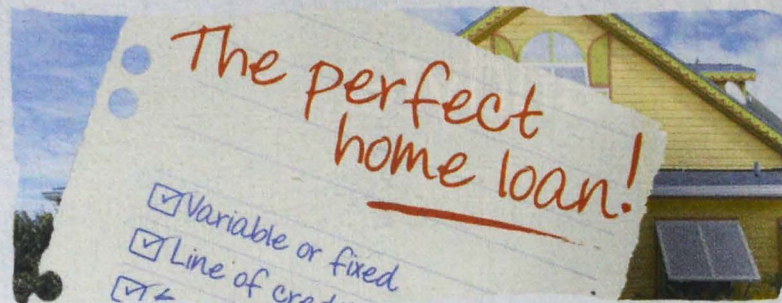 The perfect
home loan!
Variable or fixed
Line of